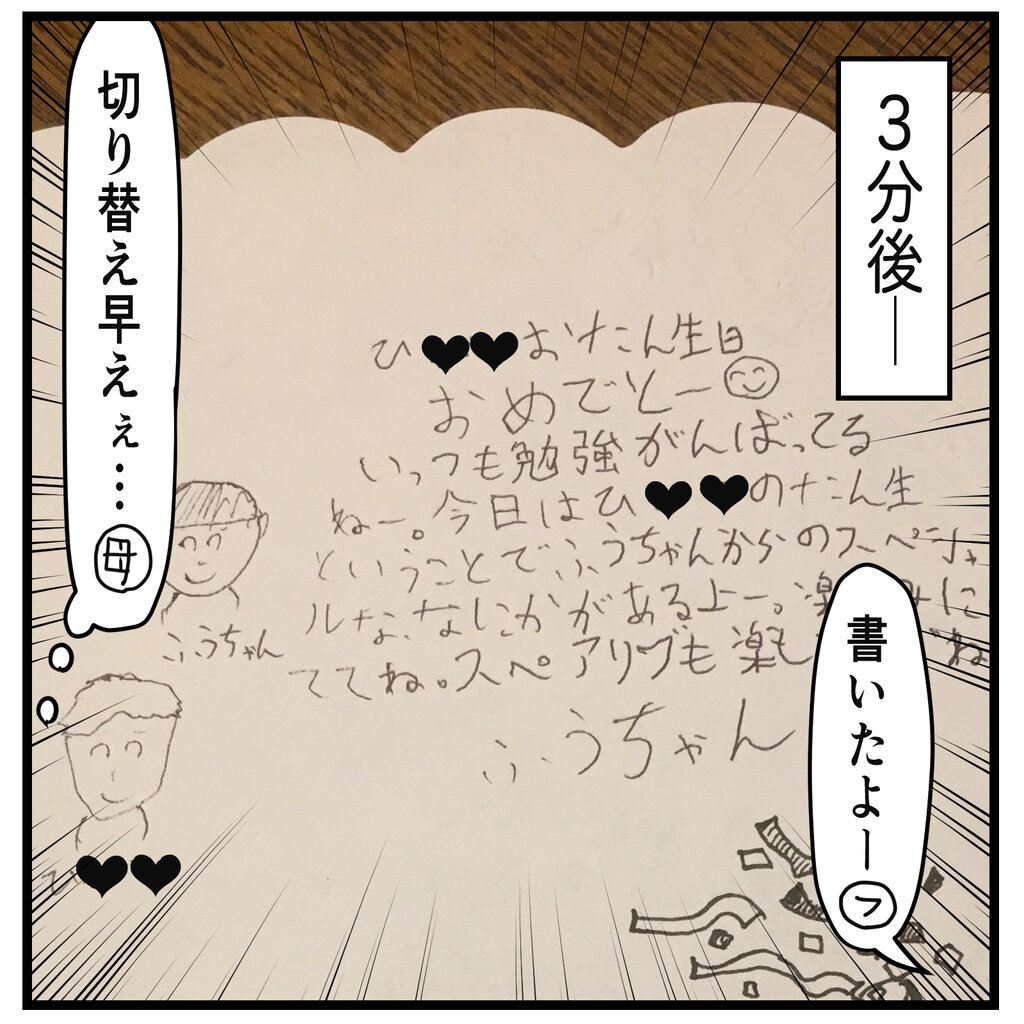 3分後―
切り替え早えぇ…
母
ひ♥♥おたん生日
おめでとー
いっつも勉強がんばってる
ねー。今日はひ♥♥のたん生
ということでふうちゃんからのスペチャ
ルな、なにかがあるよー。楽
ててね。スペアリブも楽も
ふうちゃん
ふうちゃん
ひ♥♥
書いたよー
フ